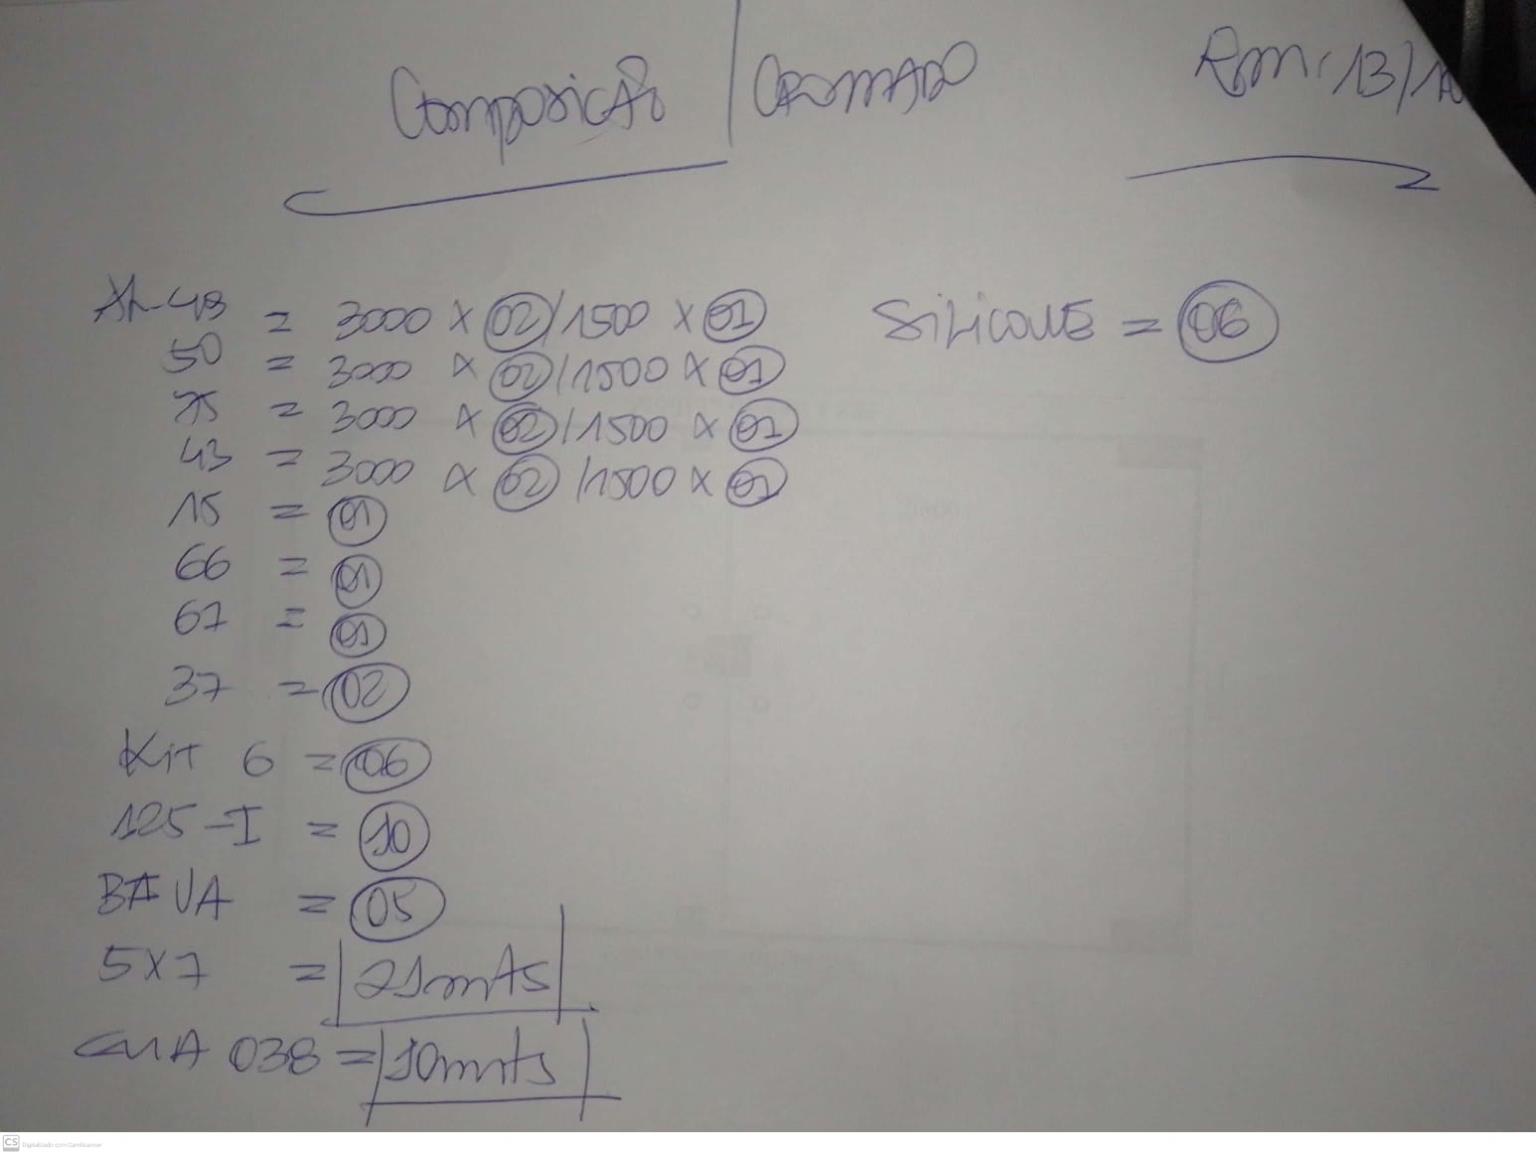 Composição | CROMADO
Rm: 13/10
AL-48 = 3000 x 02 / 1500 x 01
SILICONE = 06
50 = 3000 x 02 / 1500 x 01
75 = 3000 x 02 / 1500 x 01
43 = 3000 x 02 / 1500 x 01
15 = 01
66 = 01
67 = 01
37 = 02
Kit 6 = 06
125-I = 10
5x7 = 21mts
038 = 10mts
CS Digitalizado com CamScanner